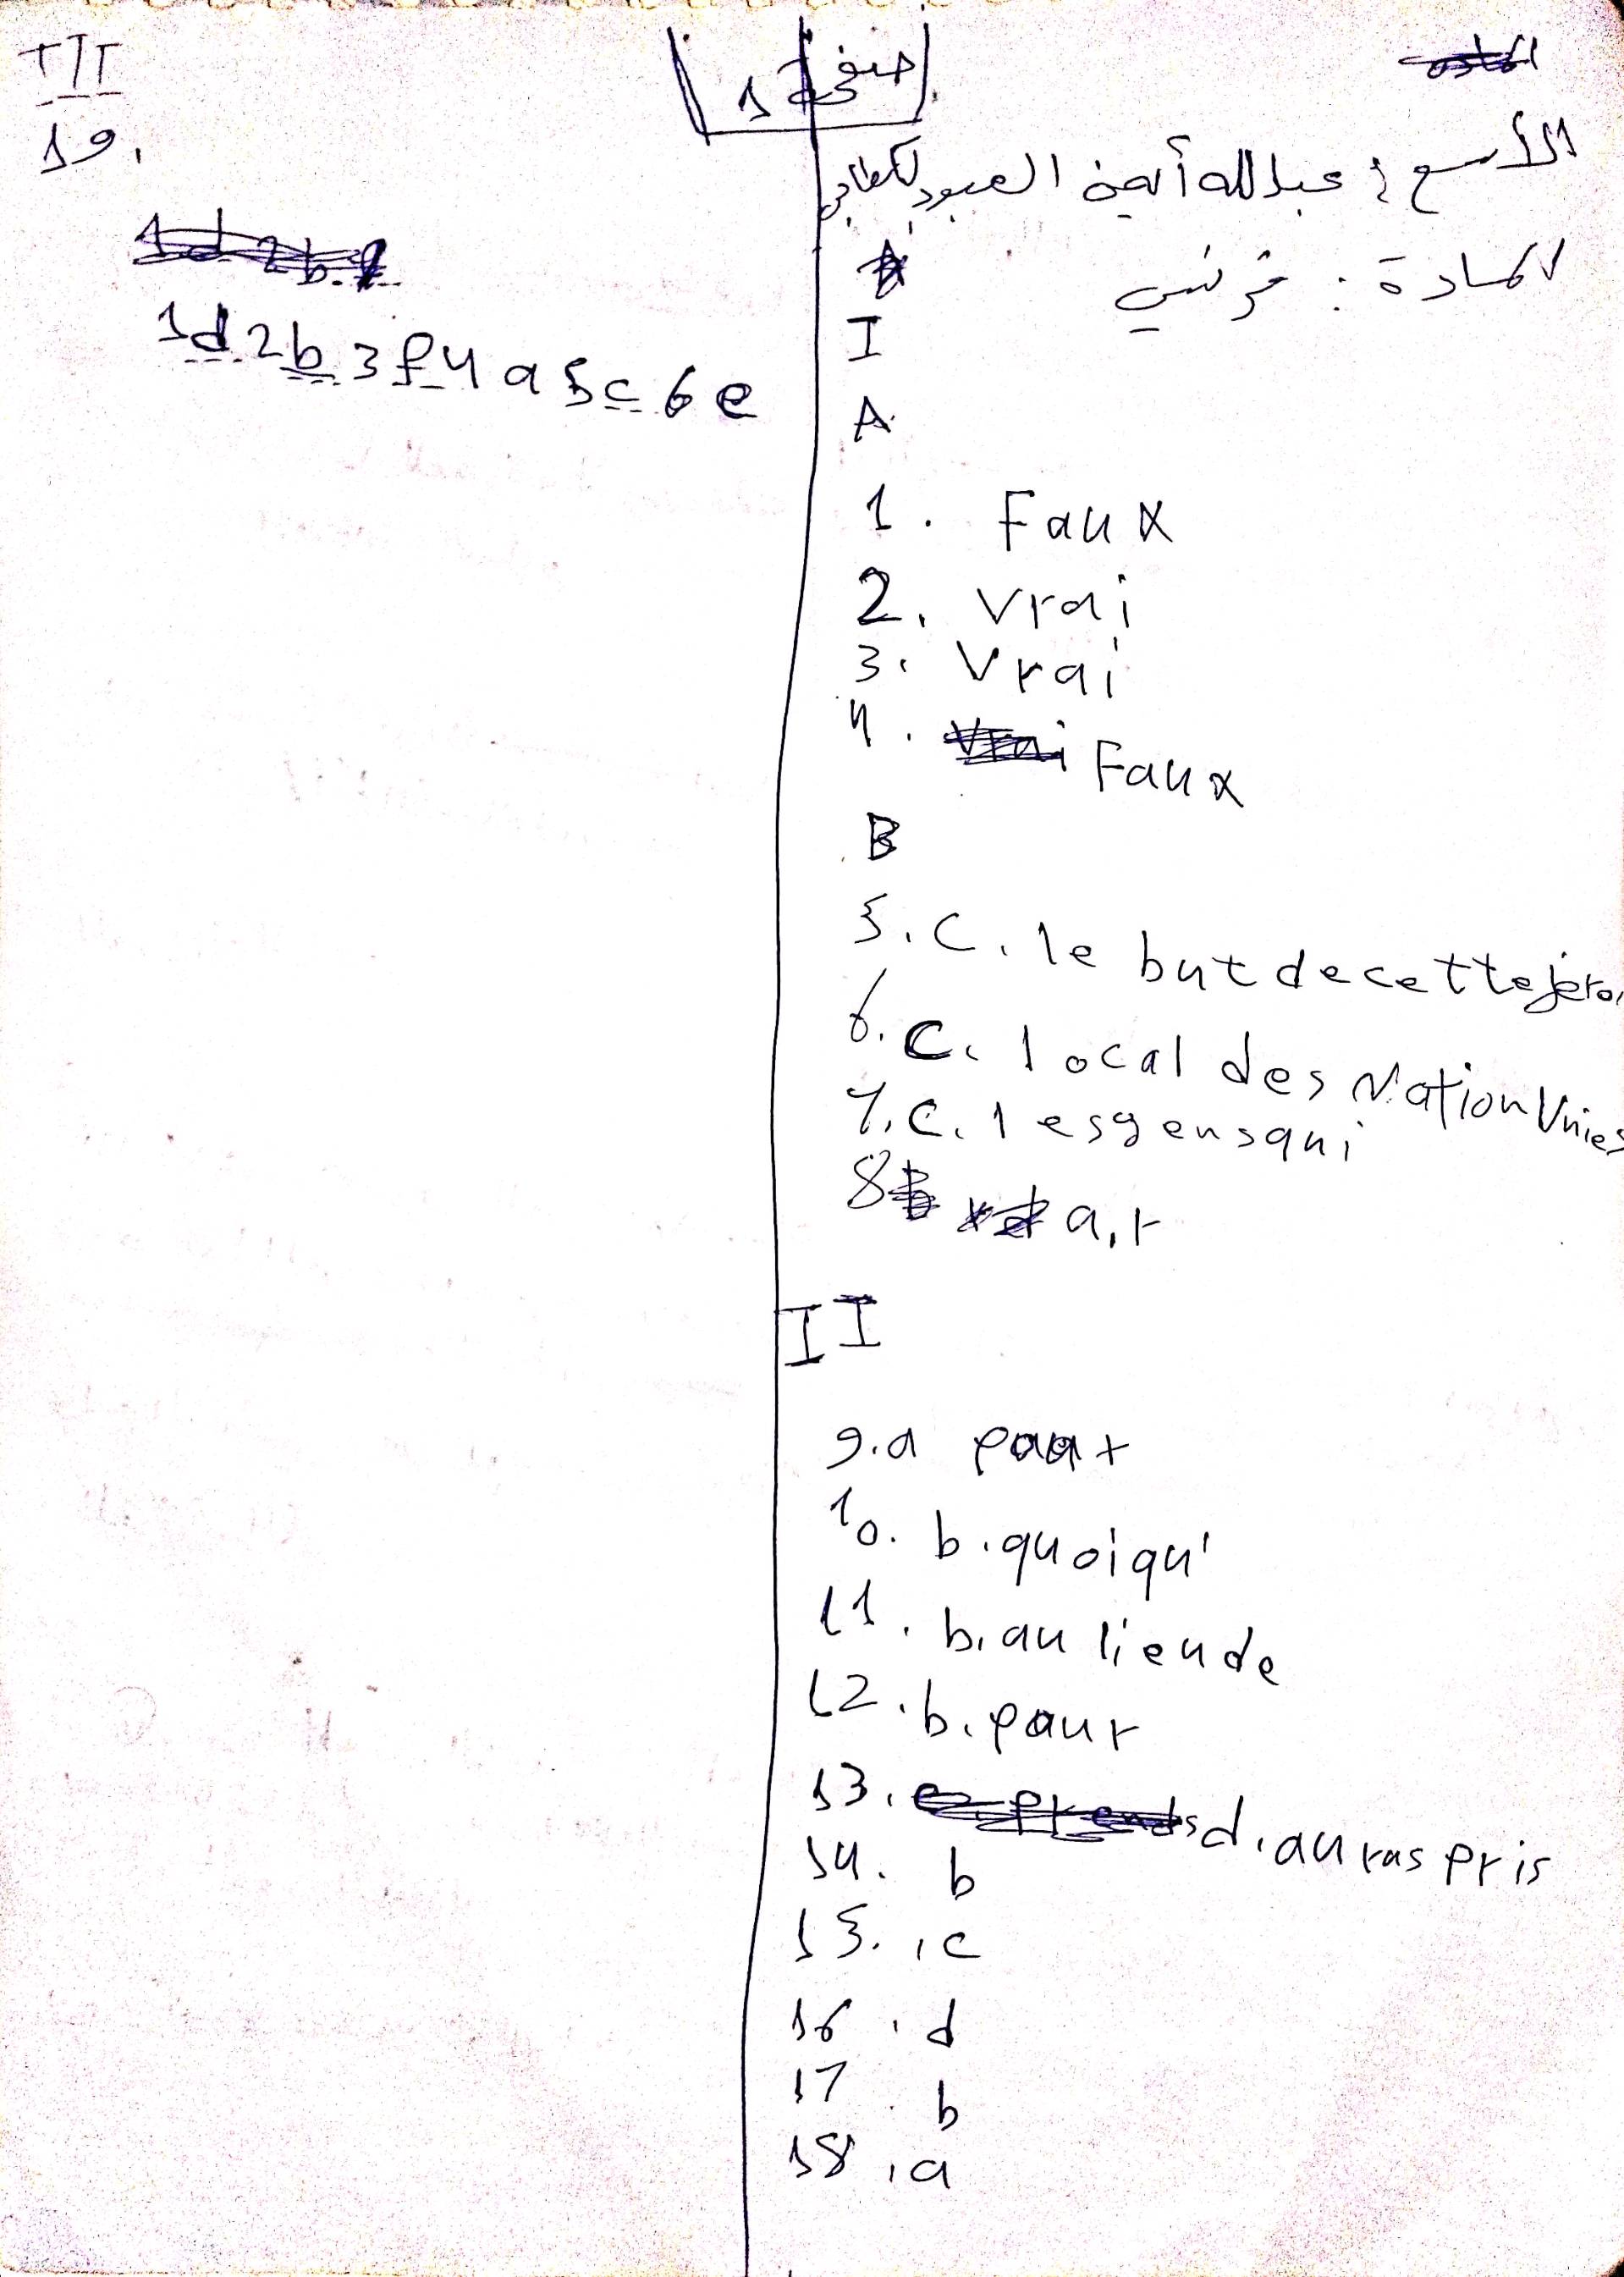 صفحة 1
الأسم : عبدالله أيمن العبود
المادة : فرنسي
I
A
1. Faux
2. Vrai
3. Vrai
4. Faux
B
5. C. le but de cette
6. C. local des Nation Unies
7. C. les gens qui
8 a, r
II
9. a
10. b. quoiqu'
11. b. au lieu de
12. b. pour
13. d. auras pris
14. b
15. c
16. d
17. b
18. a
III
19.
1d 2b 3f 4a 5c 6e